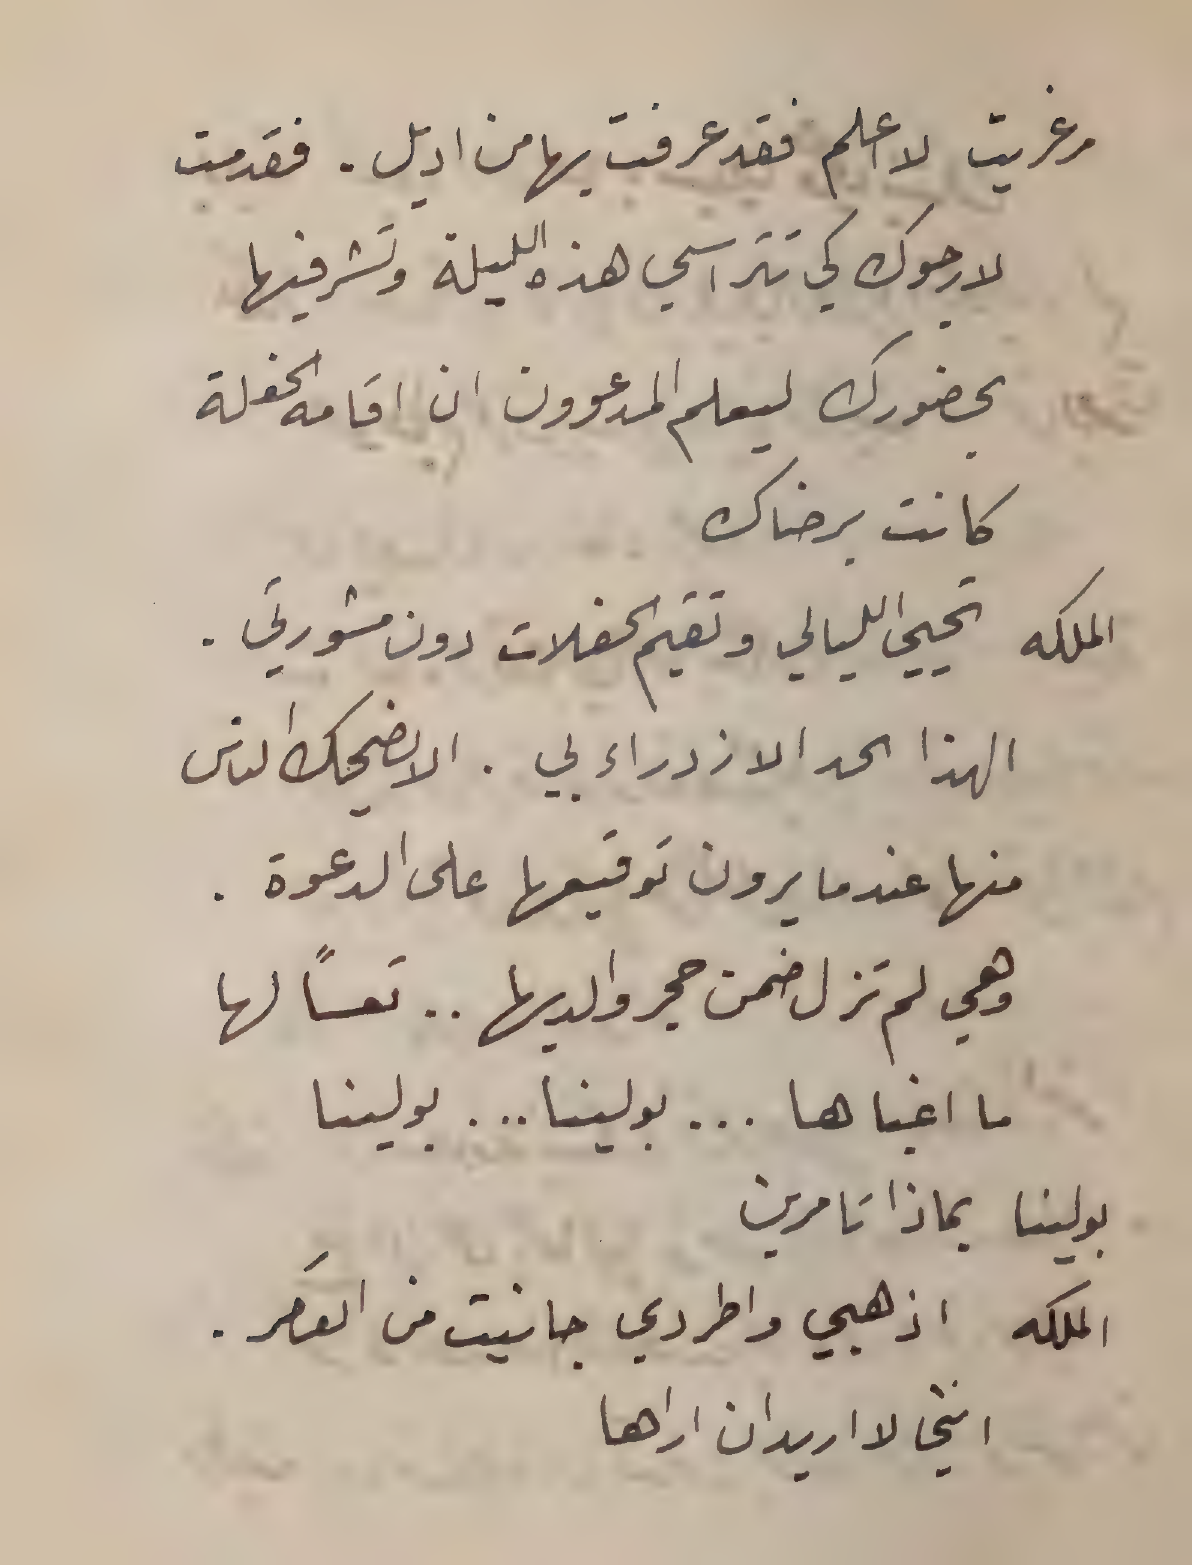 مرغريت لا اعلم فقد عرفت بها من اديل . فقدمت
لارجوك كي تتراسي هذه الليلة وتشرفيها
بحضورك ليعلم المدعوون ان اقامه الحفلة
كانت برضاك
الملكه تحيي الليالي وتقيم الحفلات دون مشورتي .
الهذا الحد الازدراء بي . الا يضحك الناس
منها عندما يرون توقيعها على الدعوة .
وهي لم تزل ضمن حجر والديها .. تعساً لها
ما اغباها ... بولينا ... بولينا
بولينا بماذا تامرين
الملكه اذهبي واطردي جانيت من القصر .
انني لا اريد ان اراها